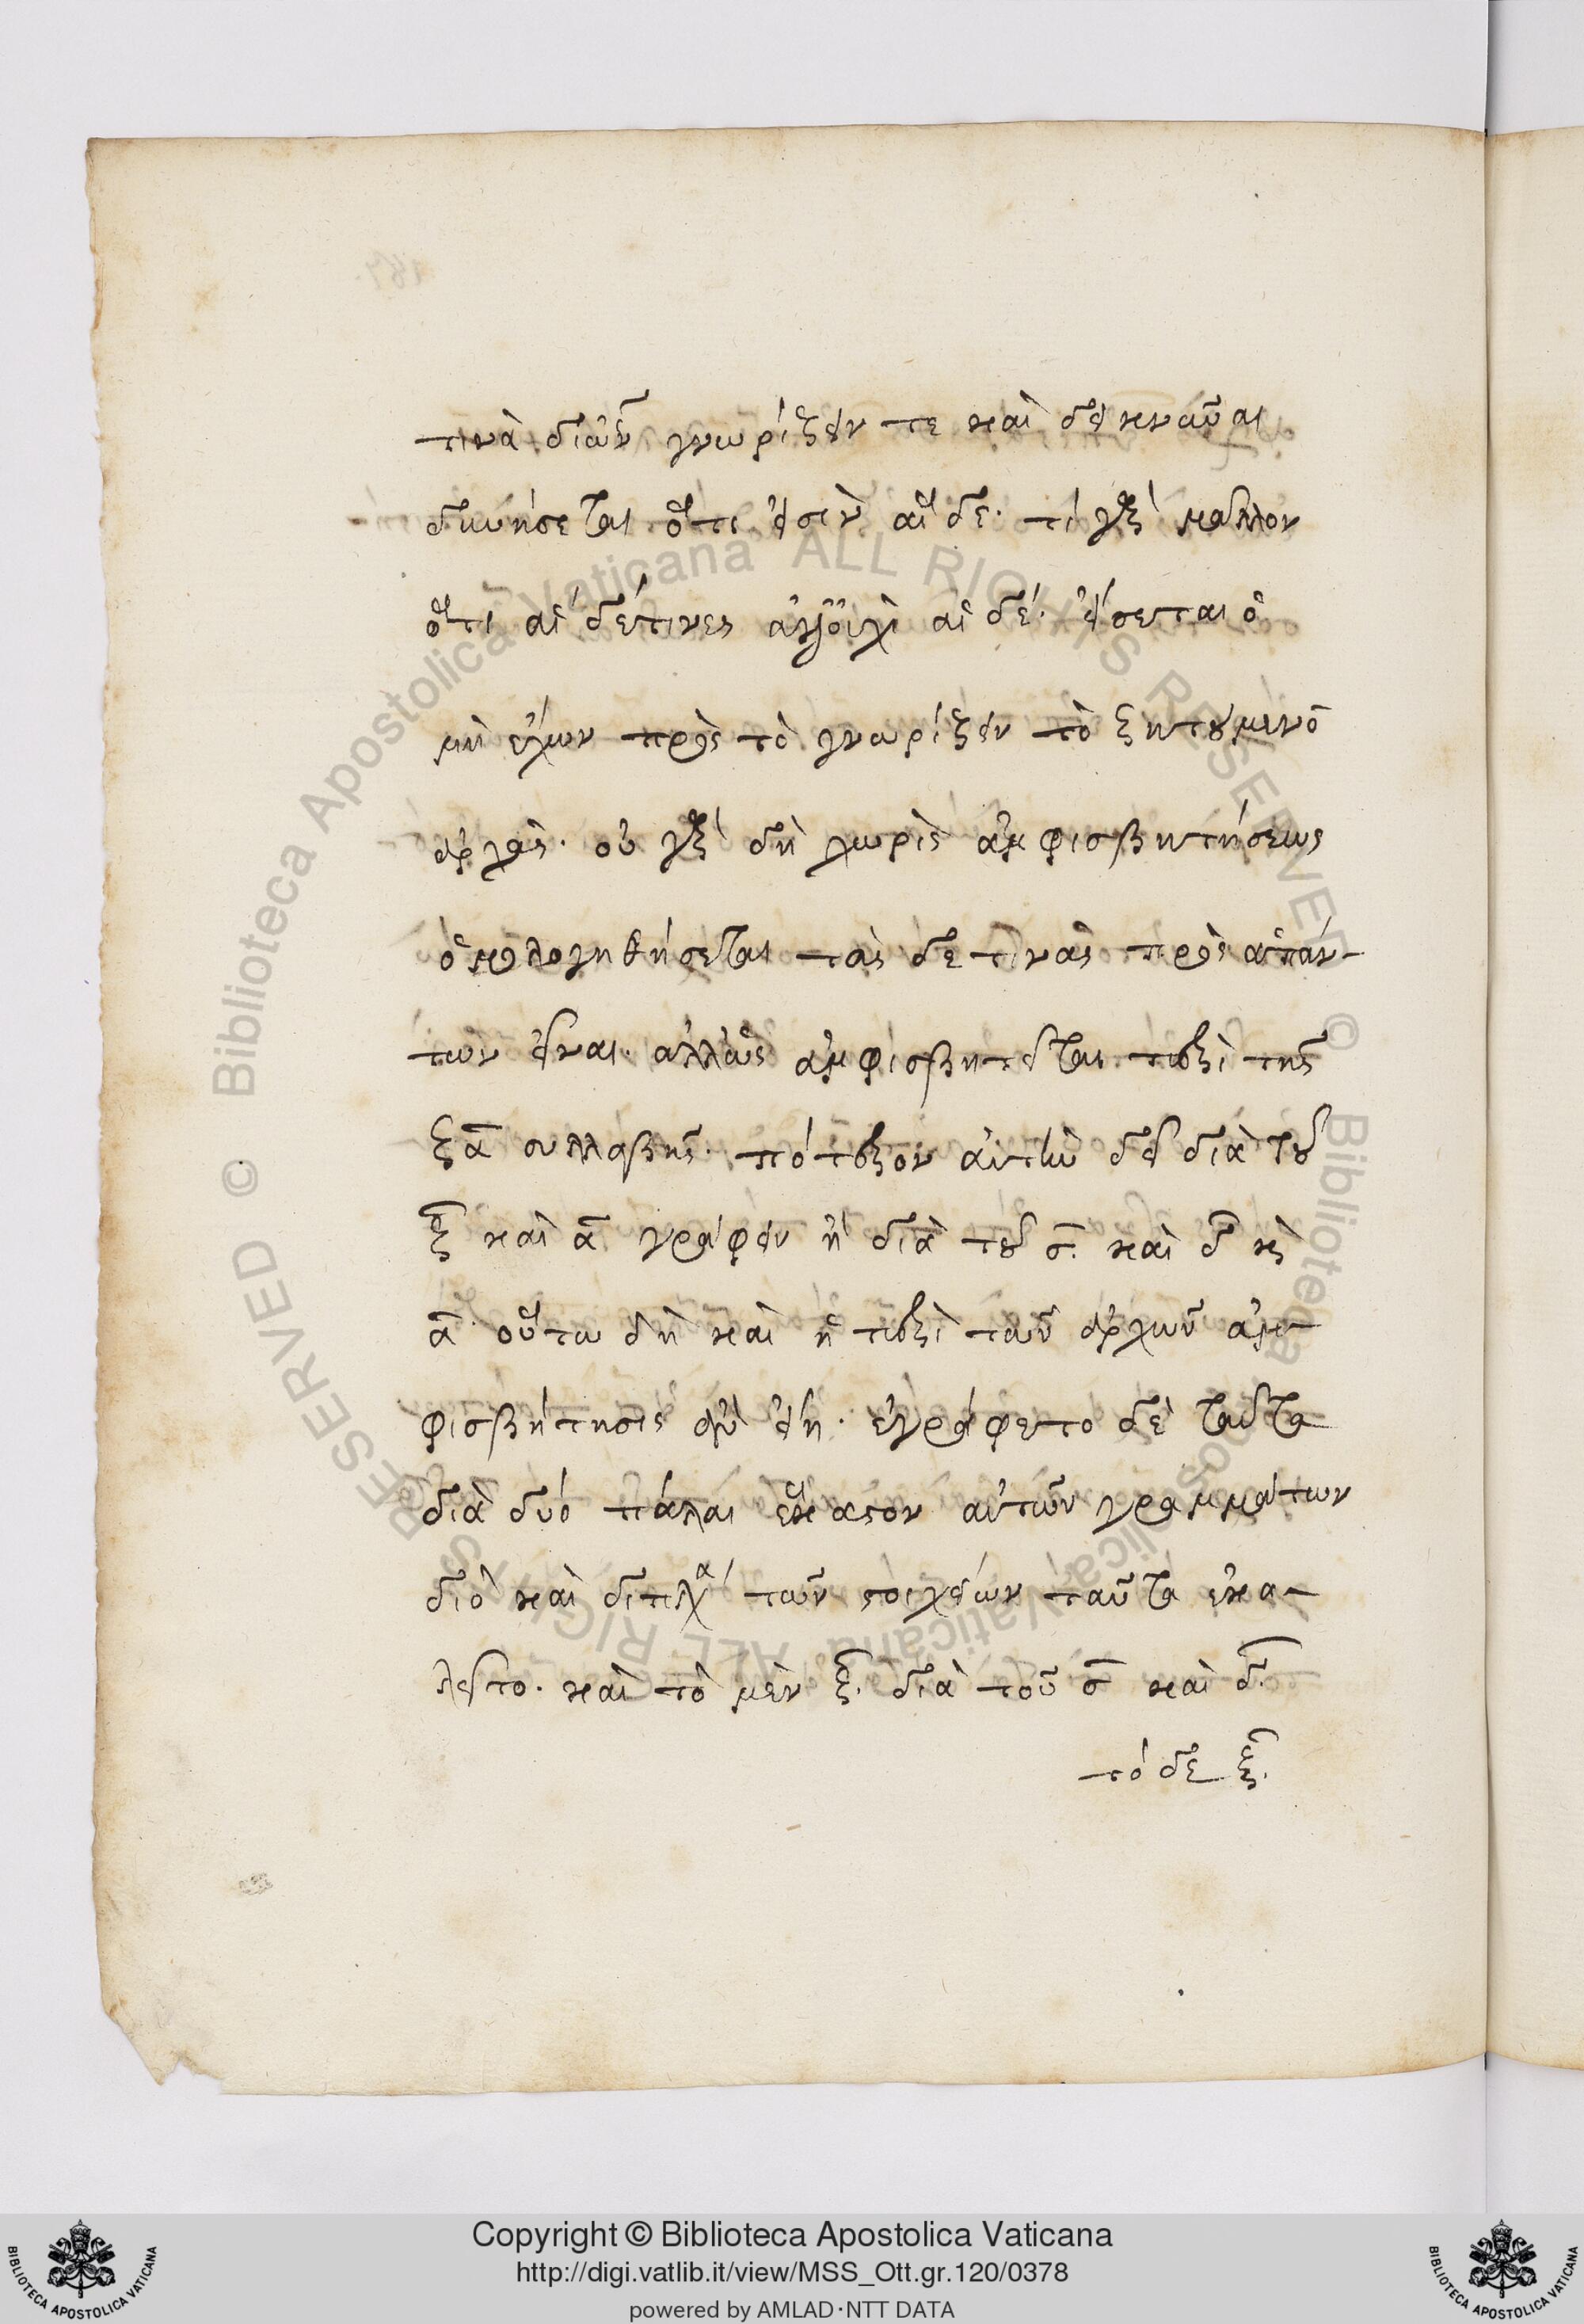 τινὰ διῶν γνωρίζειν τε καὶ δεικνῦναι
δυνήσεται ὅτι εἰσὶν αἵδε. τί γὰρ μᾶλλον
ὅτι αἱ δέτινες ἀλλ' οὐχὶ αἱ δέ. εἴσεται ὁ
μὴ ἔχων πρὸς τὸ γνωρίζειν τὸ ζητούμενον
ἀρχάς. οὐ γὰρ δὴ χωρὶς ἀμφισβητήσεως
ὁμολογηθήσεται τὰς δε τινὰς πρὸς ἁπάν-
των εἶναι. ἀλλ' ὡς ἀμφισβητεῖται περὶ τῆς
ξα συλλαβῆς. πότερον αὐτὴν δεῖ διὰ τοῦ
ξ καὶ α γράφειν ἢ διὰ τοῦ σ. καὶ δ καὶ
α οὕτω δὴ καὶ ἡ περὶ τῶν ἀρχῶν ἀμ-
φισβήτησις ἂν εἴη. ἐγράφετο δὲ ταῦτα
διὰ δύο πάλαι ἕκαστον αὐτῶν γραμμάτων
διὸ καὶ διπλᾶ τῶν στοιχείων ταῦτα ἐκα-
λεῖτο. καὶ τὸ μὲν ξ. διὰ τοῦ σ καὶ δ.
τὸ δε ξ.
Copyright © Biblioteca Apostolica Vaticana
http://digi.vatlib.it/view/MSS_Ott.gr.120/0378
powered by AMLAD·NTT DATA